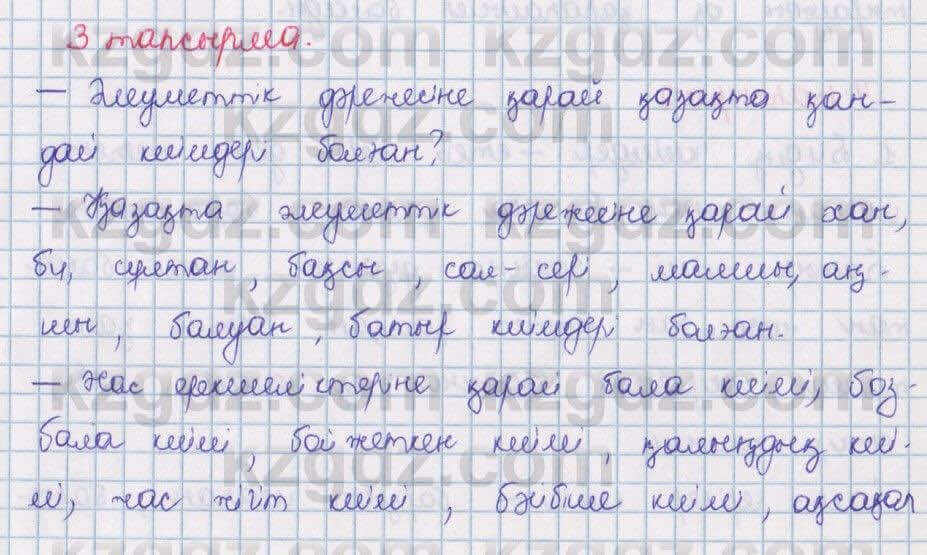 3 тапсырма.
– Әлеуметтік дәрежесіне қарай қазақта қан-
дай киімдері болған?
– Қазақта әлеуметтік дәрежесіне қарай хан,
би, сұлтан, бақсы, сал-сері, малшы, аң-
шы, балуан, батыр киімдері болған.
– Жас ерекшеліктеріне қарай бала киімі, боз-
бала киімі, бойжеткен киімі, қалыңдық киі-
мі, жас жігіт киімі, бәйбіше киімі, ақсақал
kzgdz.com